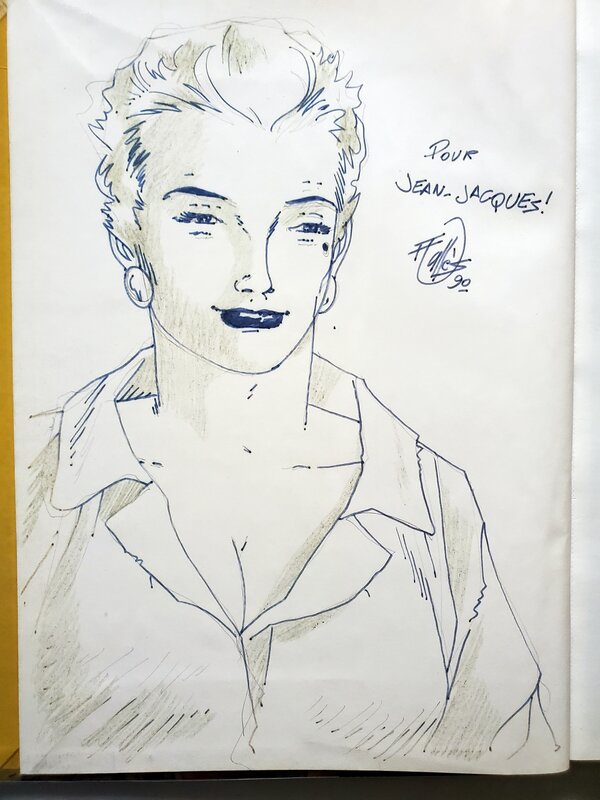 Pour
Jean-Jacques!
90